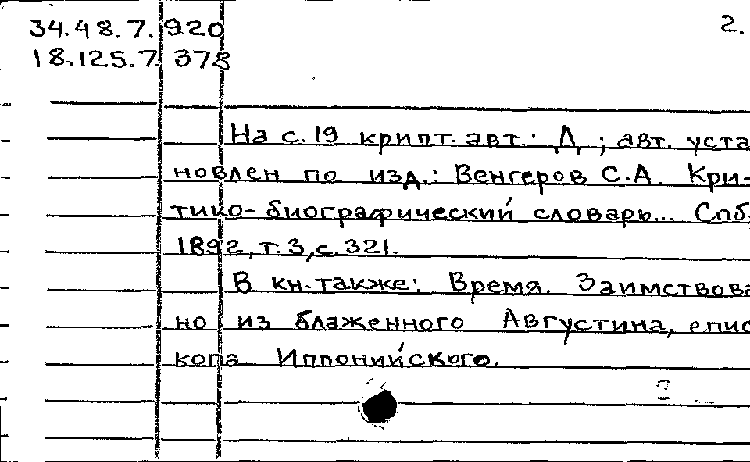 34.48.7.920 2.
18.125.7 378
На с. 19 крипт. авт.: Д ; авт. уста
новлен по изд.: Венгеров С.А. Кри-
тико-биографический словарь... Спб,
1892, т. 3, с. 321.
В кн. также: Время. Заимствова
но из блаженного Августина, епис
копа Иппонийского.